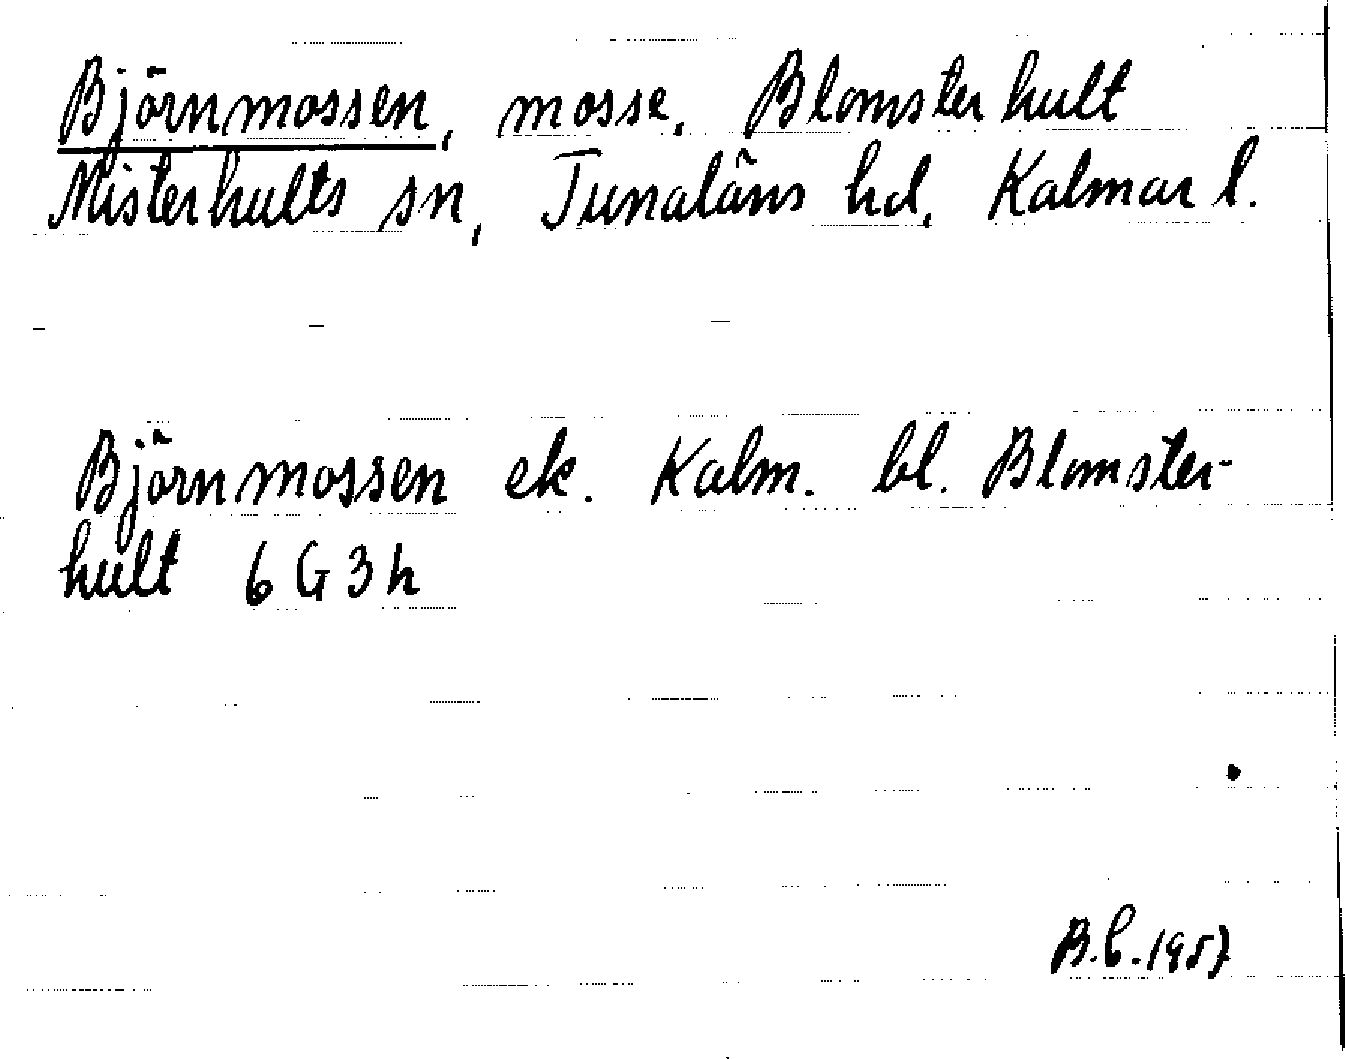 Björnmossen, mosse, Blomsterhult
Misterhults sn, Tunaläns hd, Kalmar l.
Björnmossen ek. Kalm. bl. Blomster-
hult 6G3h
B.E. 1957